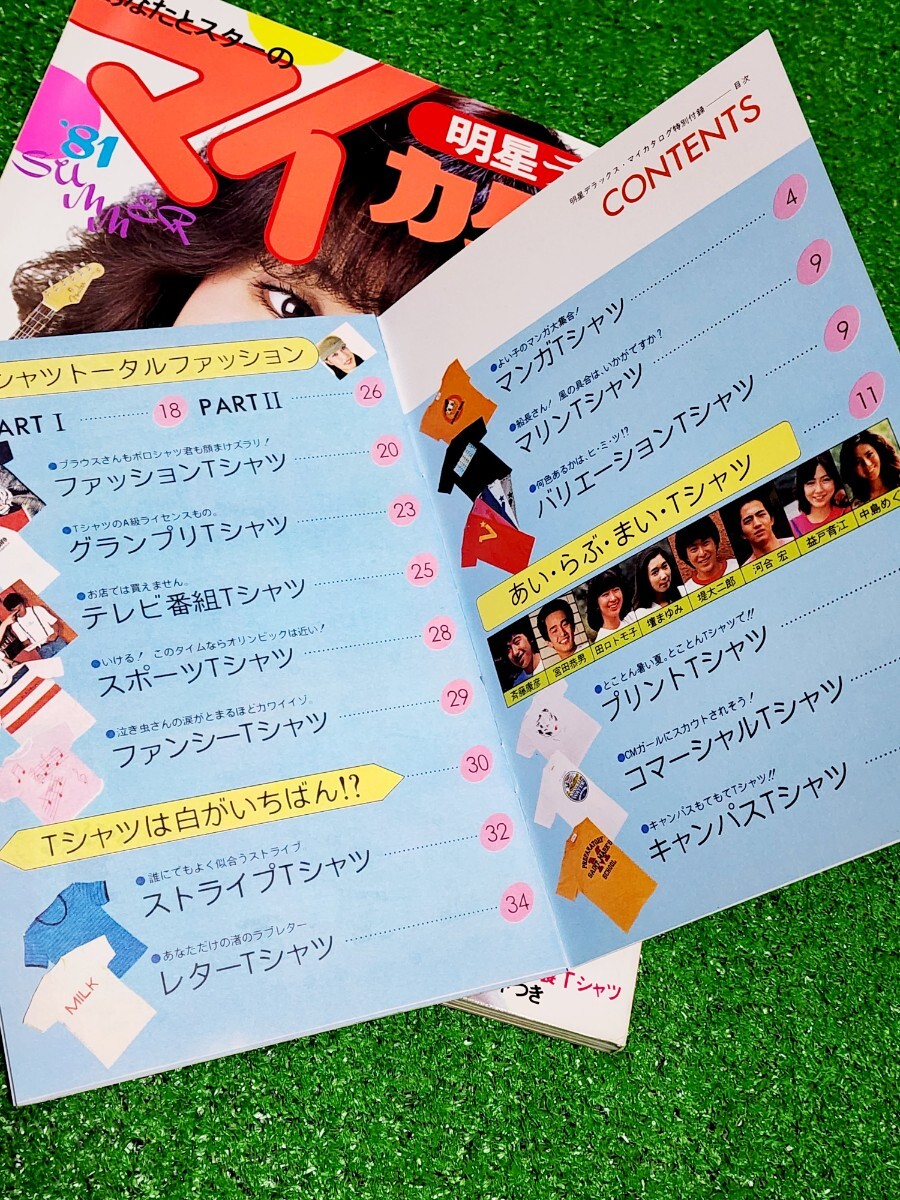 あなたとスターの
マイカ
明星
'81
SUMMER
明星デラックス・マイカタログ特別付録――目次
CONTENTS
4
●よい子のマンガ大集合!
マンガTシャツ
9
●船長さん! 風の具合は、いかがですか?
マリンTシャツ
9
●何色あるかは、ヒ・ミ・ツ!?
バリエーションTシャツ
11
あい・らぶ・まい・Tシャツ
斉藤康彦
宮田恭男
田口トモ子
壇まゆみ
堤大二郎
河合 宏
益戸育江
中島めぐ
●とことん暑い夏。とことんTシャツで!!
プリントTシャツ
●CMガールにスカウトされそう!
コマーシャルTシャツ
●キャンパスもてもてTシャツ!!
キャンパスTシャツ
シャツトータルファッション
PART I 18 PART II 26
●ブラウスさんもポロシャツ君も顔まけズラリ!
ファッションTシャツ 20
●TシャツのA級ライセンスもの。
グランプリTシャツ 23
●お店では買えません。
テレビ番組Tシャツ 25
●いける! このタイムならオリンピックは近い!
スポーツTシャツ 28
●泣き虫さんの涙がとまるほどカワイイゾ。
ファンシーTシャツ 29
Tシャツは白がいちばん!? 30
●誰にでもよく似合うストライプ
ストライプTシャツ 32
●あなただけの渚のラブレター
レターTシャツ 34
MILK
Tシャツ
つき